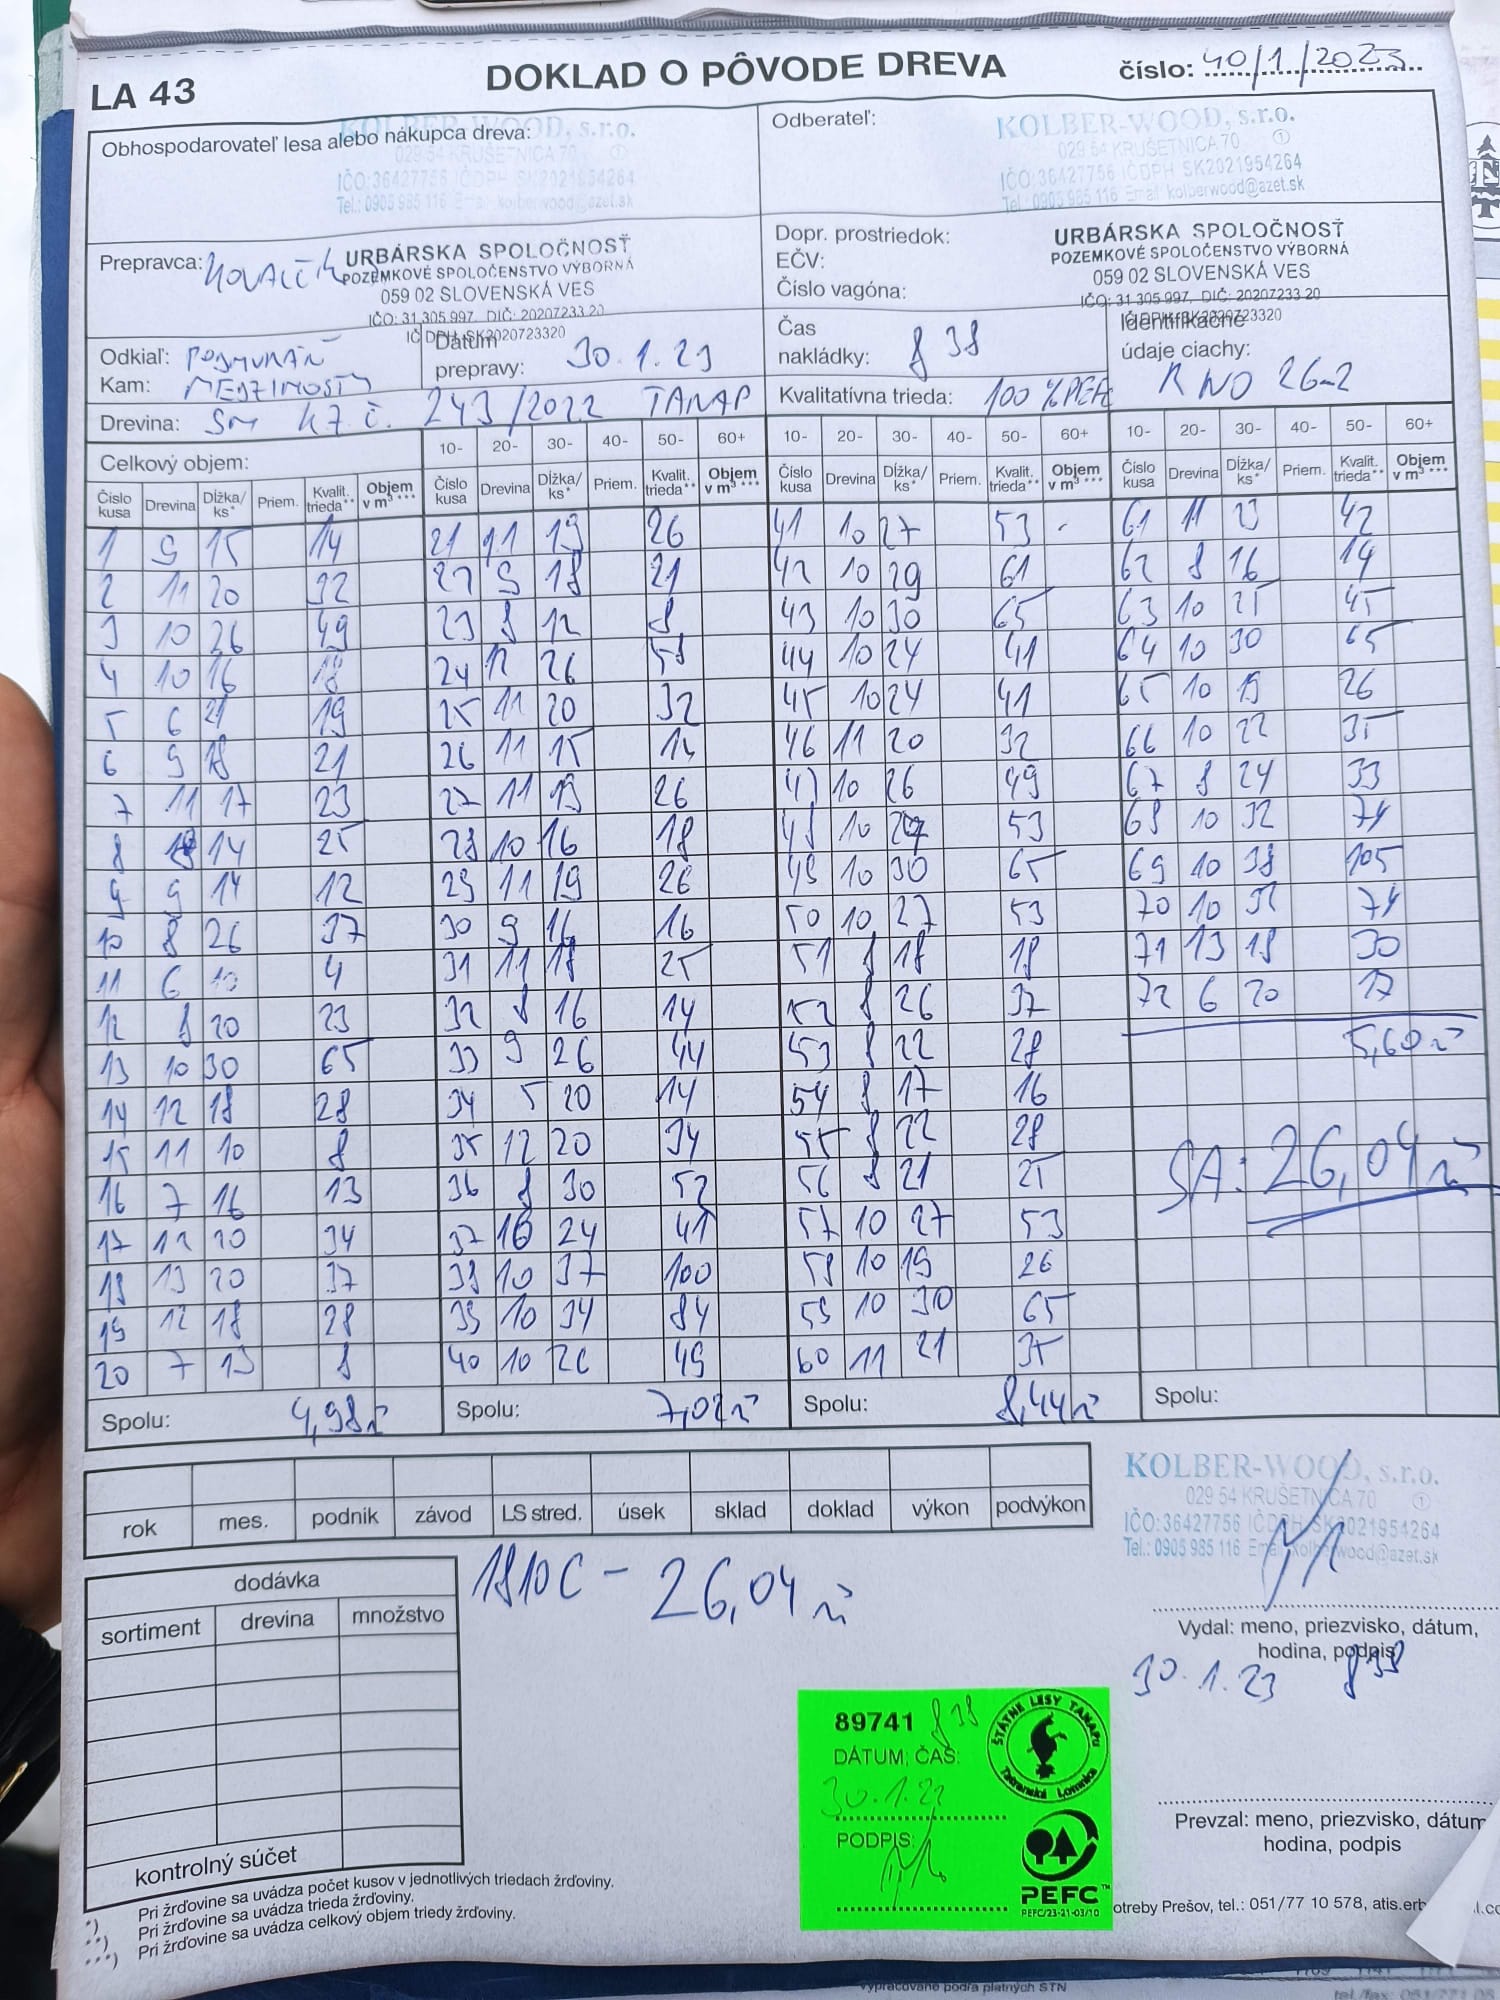 LA 43
DOKLAD O PÔVODE DREVA
číslo: 40/1/2023
Obhospodarovateľ lesa alebo nákupca dreva:
KOLBER-WOOD, s.r.o.
029 54 KRUŠETNICA 70 ①
IČO:36427756 IČDPH SK2021954264
Tel.: 0905 985 116 Email: kolberwood@azet.sk
Odberateľ:
KOLBER-WOOD, s.r.o.
029 54 KRUŠETNICA 70 ①
IČO:36427756 IČDPH SK2021954264
Tel.: 0905 985 116 Email: kolberwood@azet.sk
Prepravca: KOVALČÍK
URBÁRSKA SPOLOČNOSŤ
POZEMKOVÉ SPOLOČENSTVO VÝBORNÁ
059 02 SLOVENSKÁ VES
IČO: 31 305 997, DIČ: 20207233 20
IČ DPH: SK2020723320
Dopr. prostriedok:
EČV:
Číslo vagóna:
URBÁRSKA SPOLOČNOSŤ
POZEMKOVÉ SPOLOČENSTVO VÝBORNÁ
059 02 SLOVENSKÁ VES
IČO: 31 305 997, DIČ: 20207233 20
IČ DPH: SK2020723320
Odkiaľ: PODMURÁŇ
Kam: MEDZIMOSTY
Dátum
prepravy: 30.1.23
Čas
nakládky: 8 38
Identifikačné
údaje ciachy:
R NO 26-2
Drevina: SM K7.Č. 243/2022 TANAP
Kvalitatívna trieda: 100 % PEFC
Celkový objem:
10- 20- 30- 40- 50- 60+ 10- 20- 30- 40- 50- 60+ 10- 20- 30- 40- 50- 60+
Číslo kusa Drevina Dĺžka/ ks* Priem. Kvalit. trieda** Objem v m³ *** Číslo kusa Drevina Dĺžka/ ks* Priem. Kvalit. trieda** Objem v m³ *** Číslo kusa Drevina Dĺžka/ ks* Priem. Kvalit. trieda** Objem v m³ *** Číslo kusa Drevina Dĺžka/ ks* Priem. Kvalit. trieda** Objem v m³ ***
1 9 15 14 21 11 19 26 41 10 27 53 61 11 23 42
2 11 20 32 22 9 18 21 42 10 29 61 62 8 16 14
3 10 26 49 23 8 12 8 43 10 30 65 63 10 25 45
4 10 16 18 24 12 26 58 44 10 24 41 64 10 30 65
5 6 21 19 25 11 20 32 45 10 24 41 65 10 19 26
6 9 18 21 26 11 15 46 11 20 32 66 10 22 35
7 11 17 23 27 11 19 26 47 10 26 49 67 8 24 33
8 14 25 28 10 16 18 48 10 27 53 68 10 32 74
9 9 14 12 29 11 19 26 49 10 30 65 69 10 38 105
10 8 26 37 30 9 16 16 50 10 27 53 70 10 32 74
11 6 10 4 31 11 18 25 51 8 18 18 71 13 18 30
12 8 20 23 32 8 16 14 52 8 26 37 72 6 20 17
13 10 30 65 33 9 26 44 53 8 22 28 5,60 m³
14 12 18 28 34 5 20 14 54 8 17 16
15 11 10 8 35 12 20 34 55 8 22 28
16 7 16 13 36 8 30 52 56 8 21 25 SA: 26,04 m³
17 12 20 34 37 10 24 41 57 10 27 53
18 13 20 37 38 10 37 100 58 10 19 26
19 12 18 28 39 10 34 84 59 10 30 65
20 7 13 8 40 10 26 49 60 11 21 35
Spolu: 4,98 m³ Spolu: 7,02 m³ Spolu: 8,44 m³ Spolu:
rok mes. podnik závod LS stred. úsek sklad doklad výkon podvýkon
KOLBER-WOOD, s.r.o.
029 54 KRUŠETNICA 70 ①
IČO:36427756 IČDPH SK2021954264
Tel.: 0905 985 116 Email: kolberwood@azet.sk
Vydal: meno, priezvisko, dátum,
hodina, podpis
30.1.23 8 38
dodávka
sortiment drevina množstvo
kontrolný súčet
1810C - 26,04 m³
89741 8 38
DÁTUM, ČAS:
30.1.23
PODPIS:
ŠTÁTNE LESY TANAPu
Tatranská Lomnica
PEFC™
PEFC/23-21-03/10
Prevzal: meno, priezvisko, dátum
hodina, podpis
*) Pri žrďovine sa uvádza počet kusov v jednotlivých triedach žrďoviny.
**) Pri žrďovine sa uvádza trieda žrďoviny.
***) Pri žrďovine sa uvádza celkový objem triedy žrďoviny.
otreby Prešov, tel.: 051/77 10 578, atis.erb
vypracované podľa platných STN